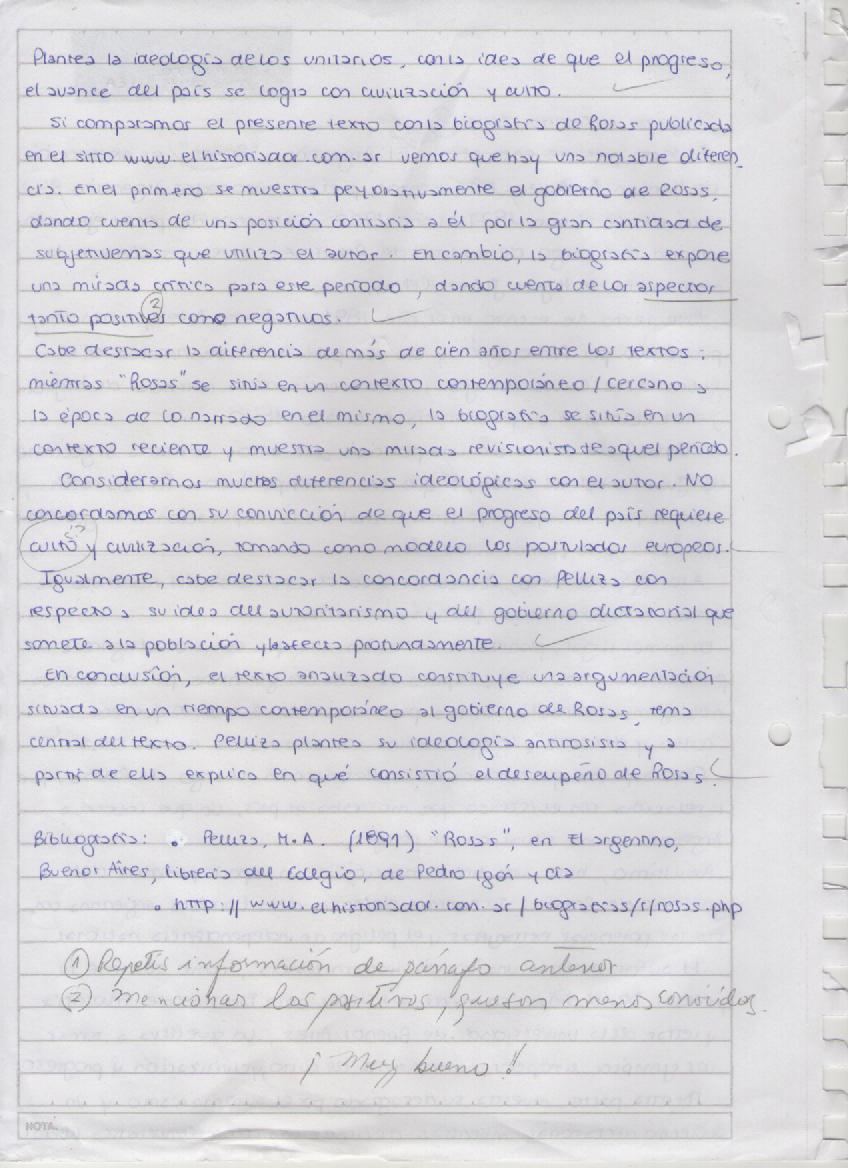 Plantea la ideología de los unitarios, con la idea de que el progreso,
el avance del país se logra con civilización y culto.
Si comparamos el presente texto con la biografía de Rosas publicada
en el sitio www.elhistoriador.com.ar vemos que hay una notable diferen
cia. En el primero se muestra peyorativamente el gobierno de Rosas,
dando cuenta de una posición contraria a él por la gran cantidad de
subjetivemas que utiliza el autor. En cambio, la biografía expone
una mirada crítica para este período, dando cuenta de los aspectos
2
tanto positivos como negativos.
Cabe destacar la diferencia de más de cien años entre los textos:
mientras "Rosas" se sitúa en un contexto contemporáneo/cercano a
la época de lo narrado en el mismo, la biografía se sitúa en un
contexto reciente y muestra una mirada revisionista de aquel período.
Consideramos muchas diferencias ideológicas con el autor. No
concordamos con su convicción de que el progreso del país requiere
¿?
culto y civilización, tomando como modelo los postulados europeos.
Igualmente, cabe destacar la concordancia con Pelliza con
respecto a su idea del autoritarismo y del gobierno dictatorial que
somete a la población y la afecta profundamente.
En conclusión, el texto analizado constituye una argumentación
situada en un tiempo contemporáneo al gobierno de Rosas, tema
central del texto. Pelliza plantea su ideología antirosista y a
partir de ella explica en qué consistió el desempeño de Rosas.
Bibliografía: • Pelliza, M.A. (1891) "Rosas", en El argentino,
Buenos Aires, Librería del Colegio, de Pedro Igón y cía
• http://www.elhistoriador.com.ar/biografias/r/rosas.php
1 Repetís información de párrafo anterior
2 Mencionar los positivos, que son menos conocidos.
¡Muy bueno!
NOTA: